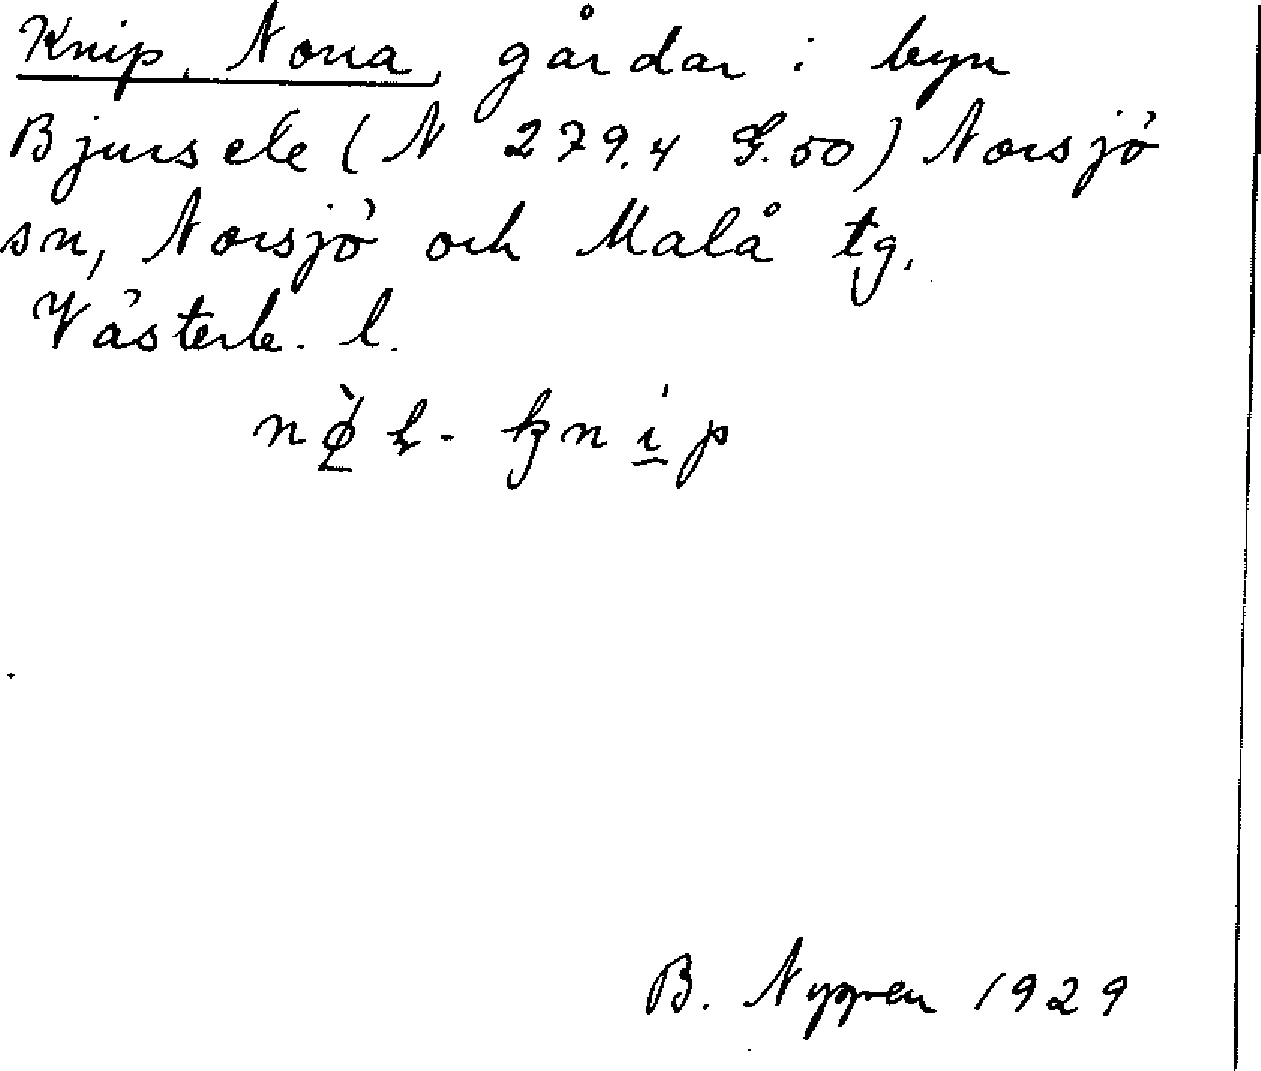 Knip, Norra, gårdar i byn
Bjursele (N 279.4 G.50) Norsjö
sn, Norsjö och Malå tg.
Västerb. l.
B. Nyppen 1929